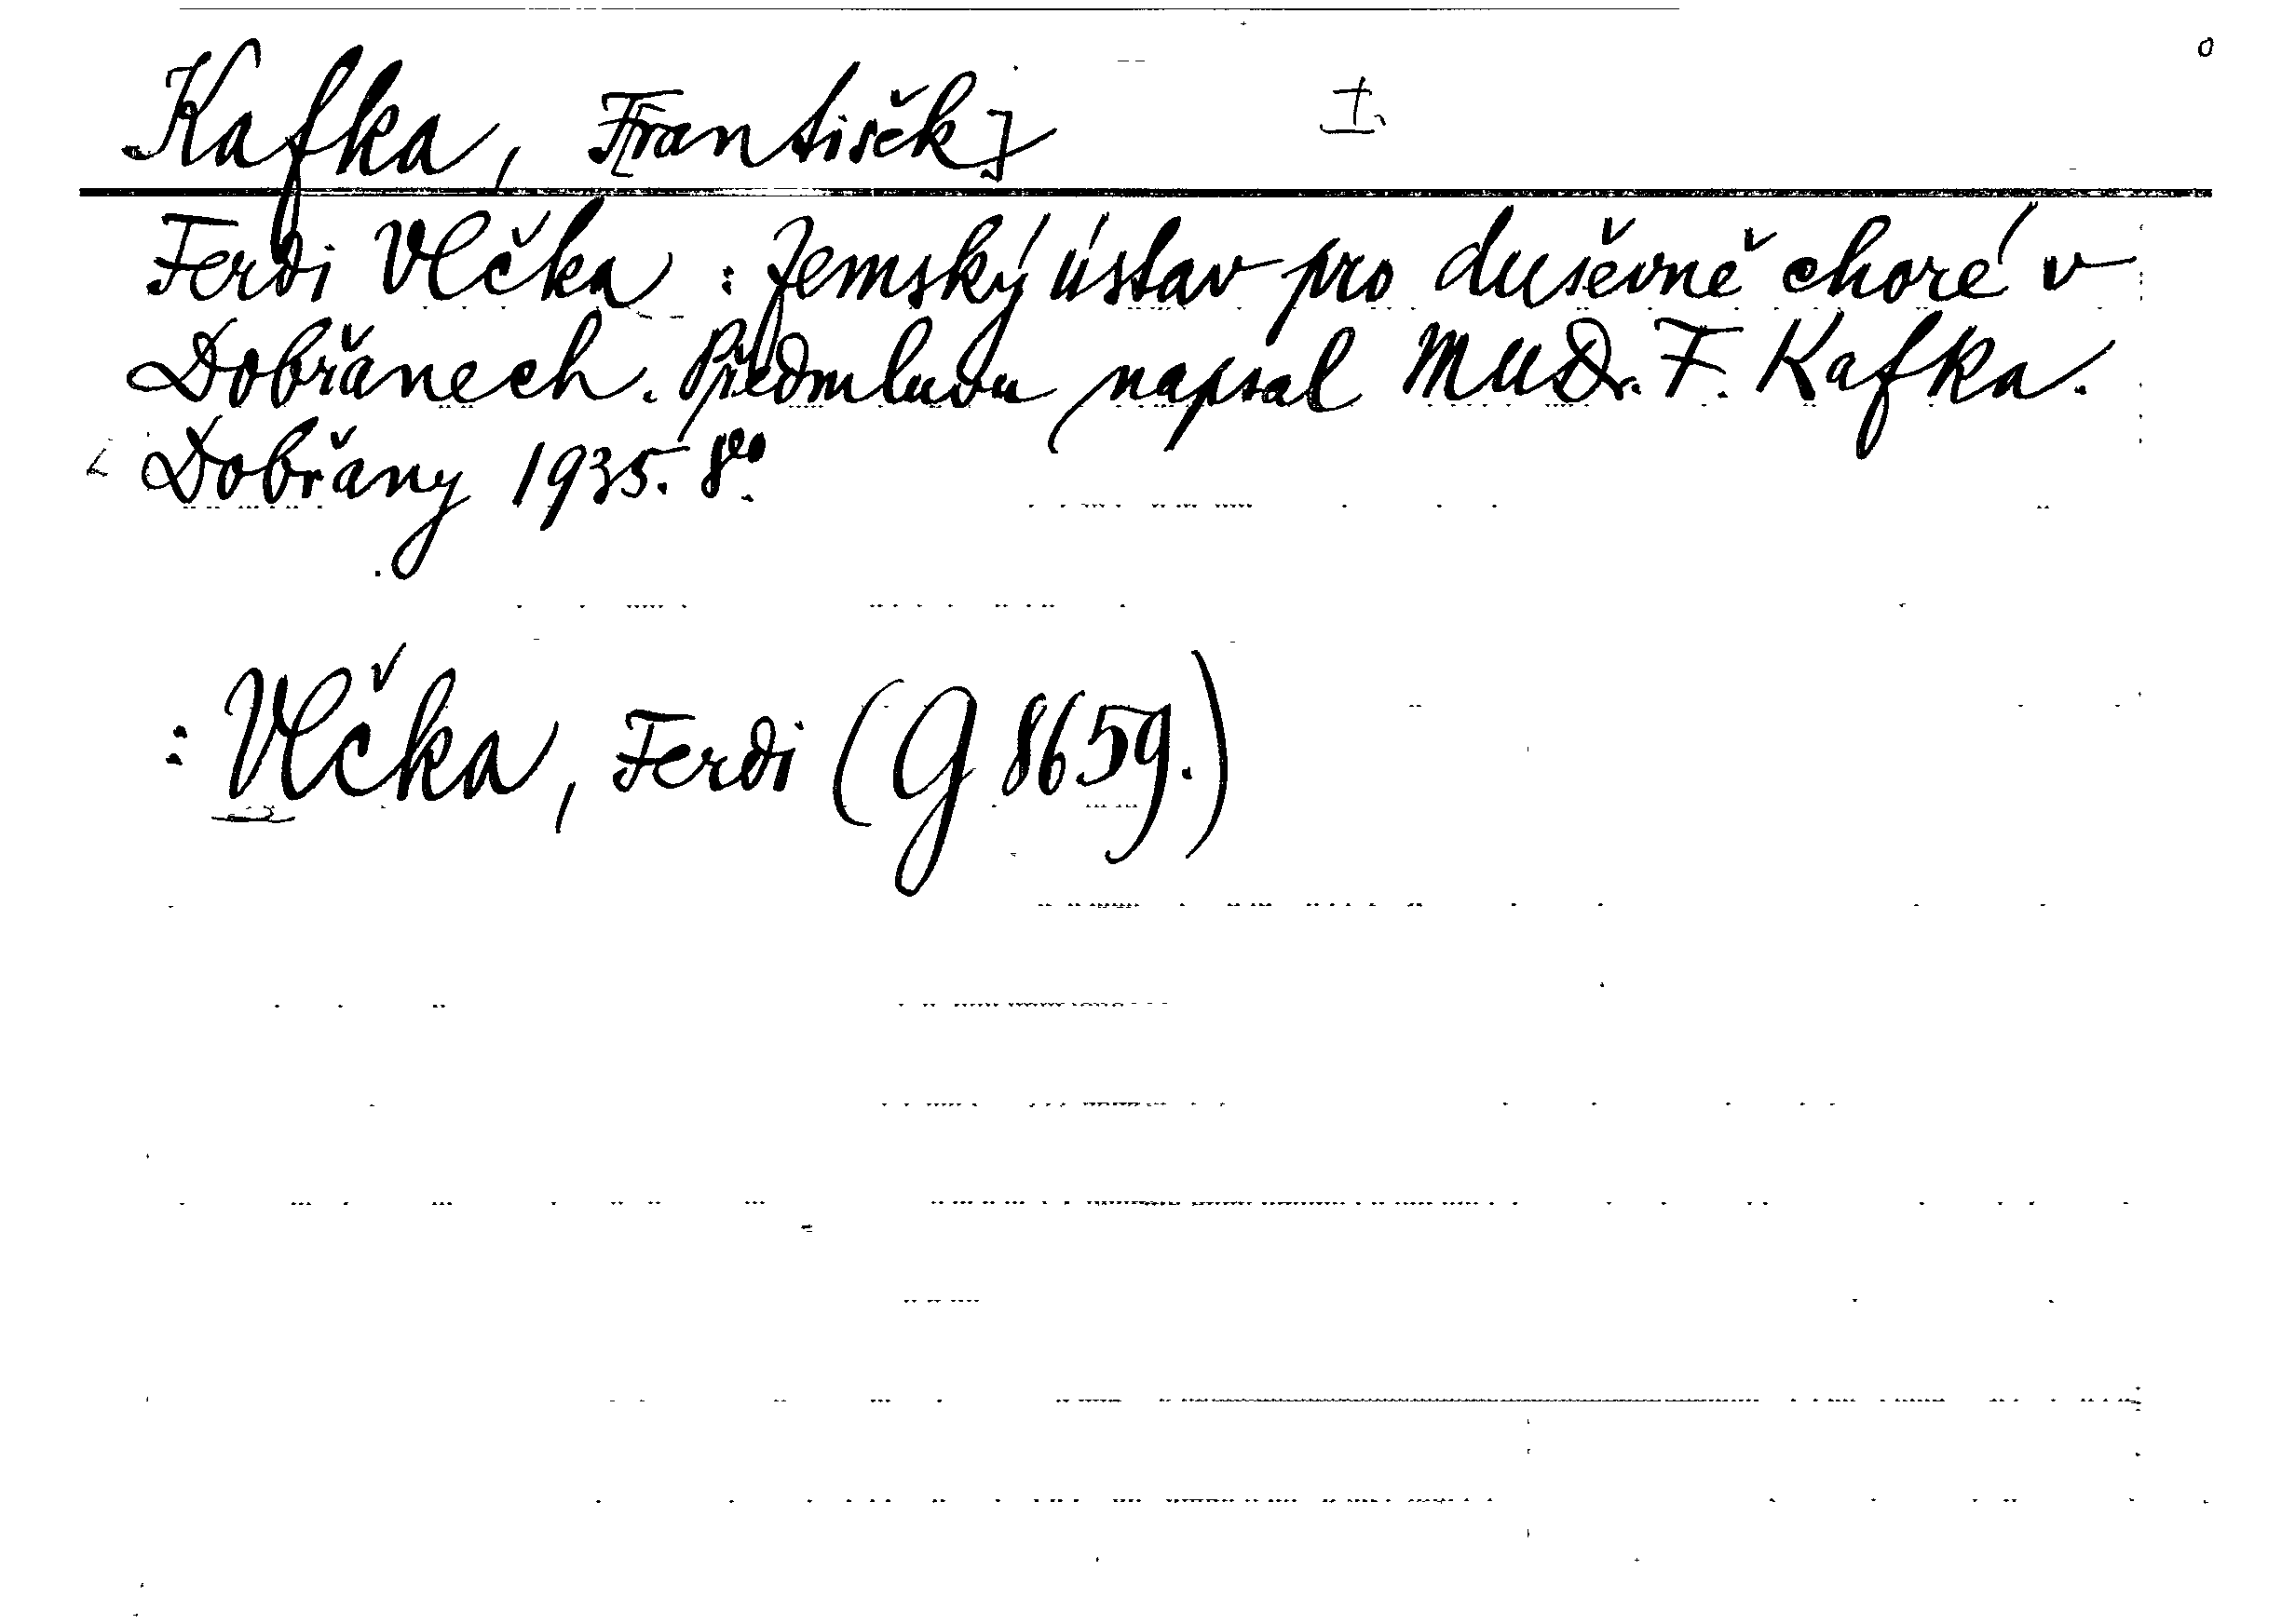 Kafka, F[rantišek] I.
Ferdi Vlčka : Zemský ústav pro duševně choré v
Dobřanech. Předmluvu napsal MUDr. F. Kafka.
Dobřany 1935. 8º.
: Vlčka, Ferdi (G 8659.)